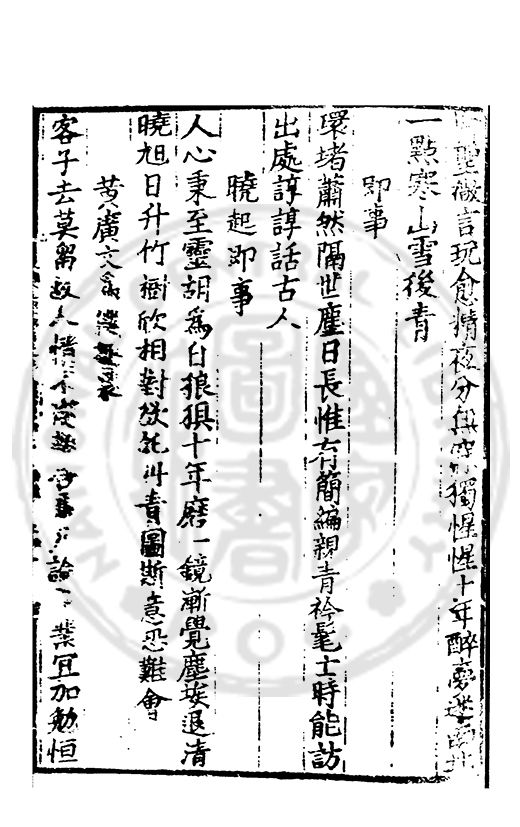 聖微言玩愈精夜分無寐獨惺惺十年醉夢迷南北
一點寒山雪後青
即事
環堵蕭然隔世塵日長惟有簡編親青衿髦士時能訪
出處諄諄話古人
曉起即事
人心秉至靈胡爲自狼狽十年磨一鏡漸覺塵埃退清
曉旭日升竹樹欣相對欲託丹青圖斯意恐難會
黃廣文
客子去莫留故人惜 論 業宜加勉恒